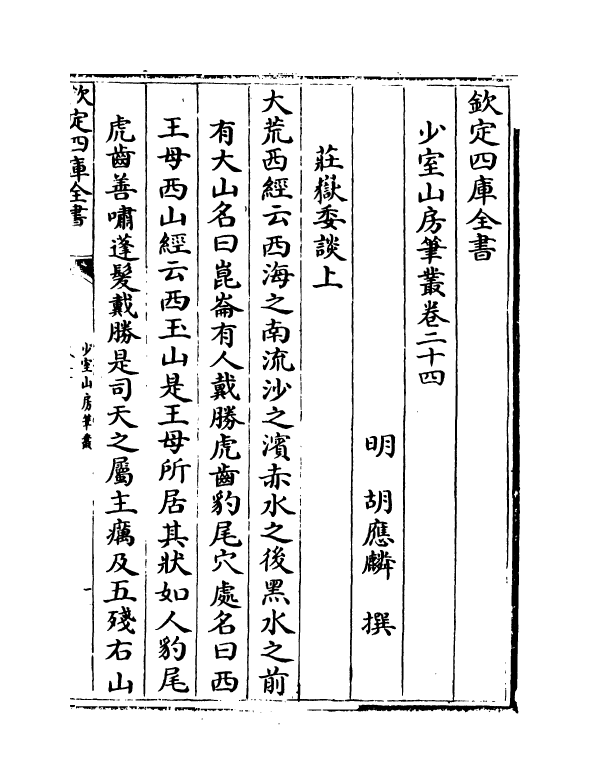 欽定四庫全書
少室山房筆叢卷二十四
明 胡應麟 撰
莊嶽委談上
大荒西經云西海之南流沙之濱赤水之後黑水之前
有大山名曰崑崙有人戴勝虎齒豹尾穴處名曰西
王母西山經云西玉山是王母所居其狀如人豹尾
虎齒善嘯蓬髮戴勝是司天之屬主癘及五殘右山
欽定四庫全書
少室山房筆叢
一